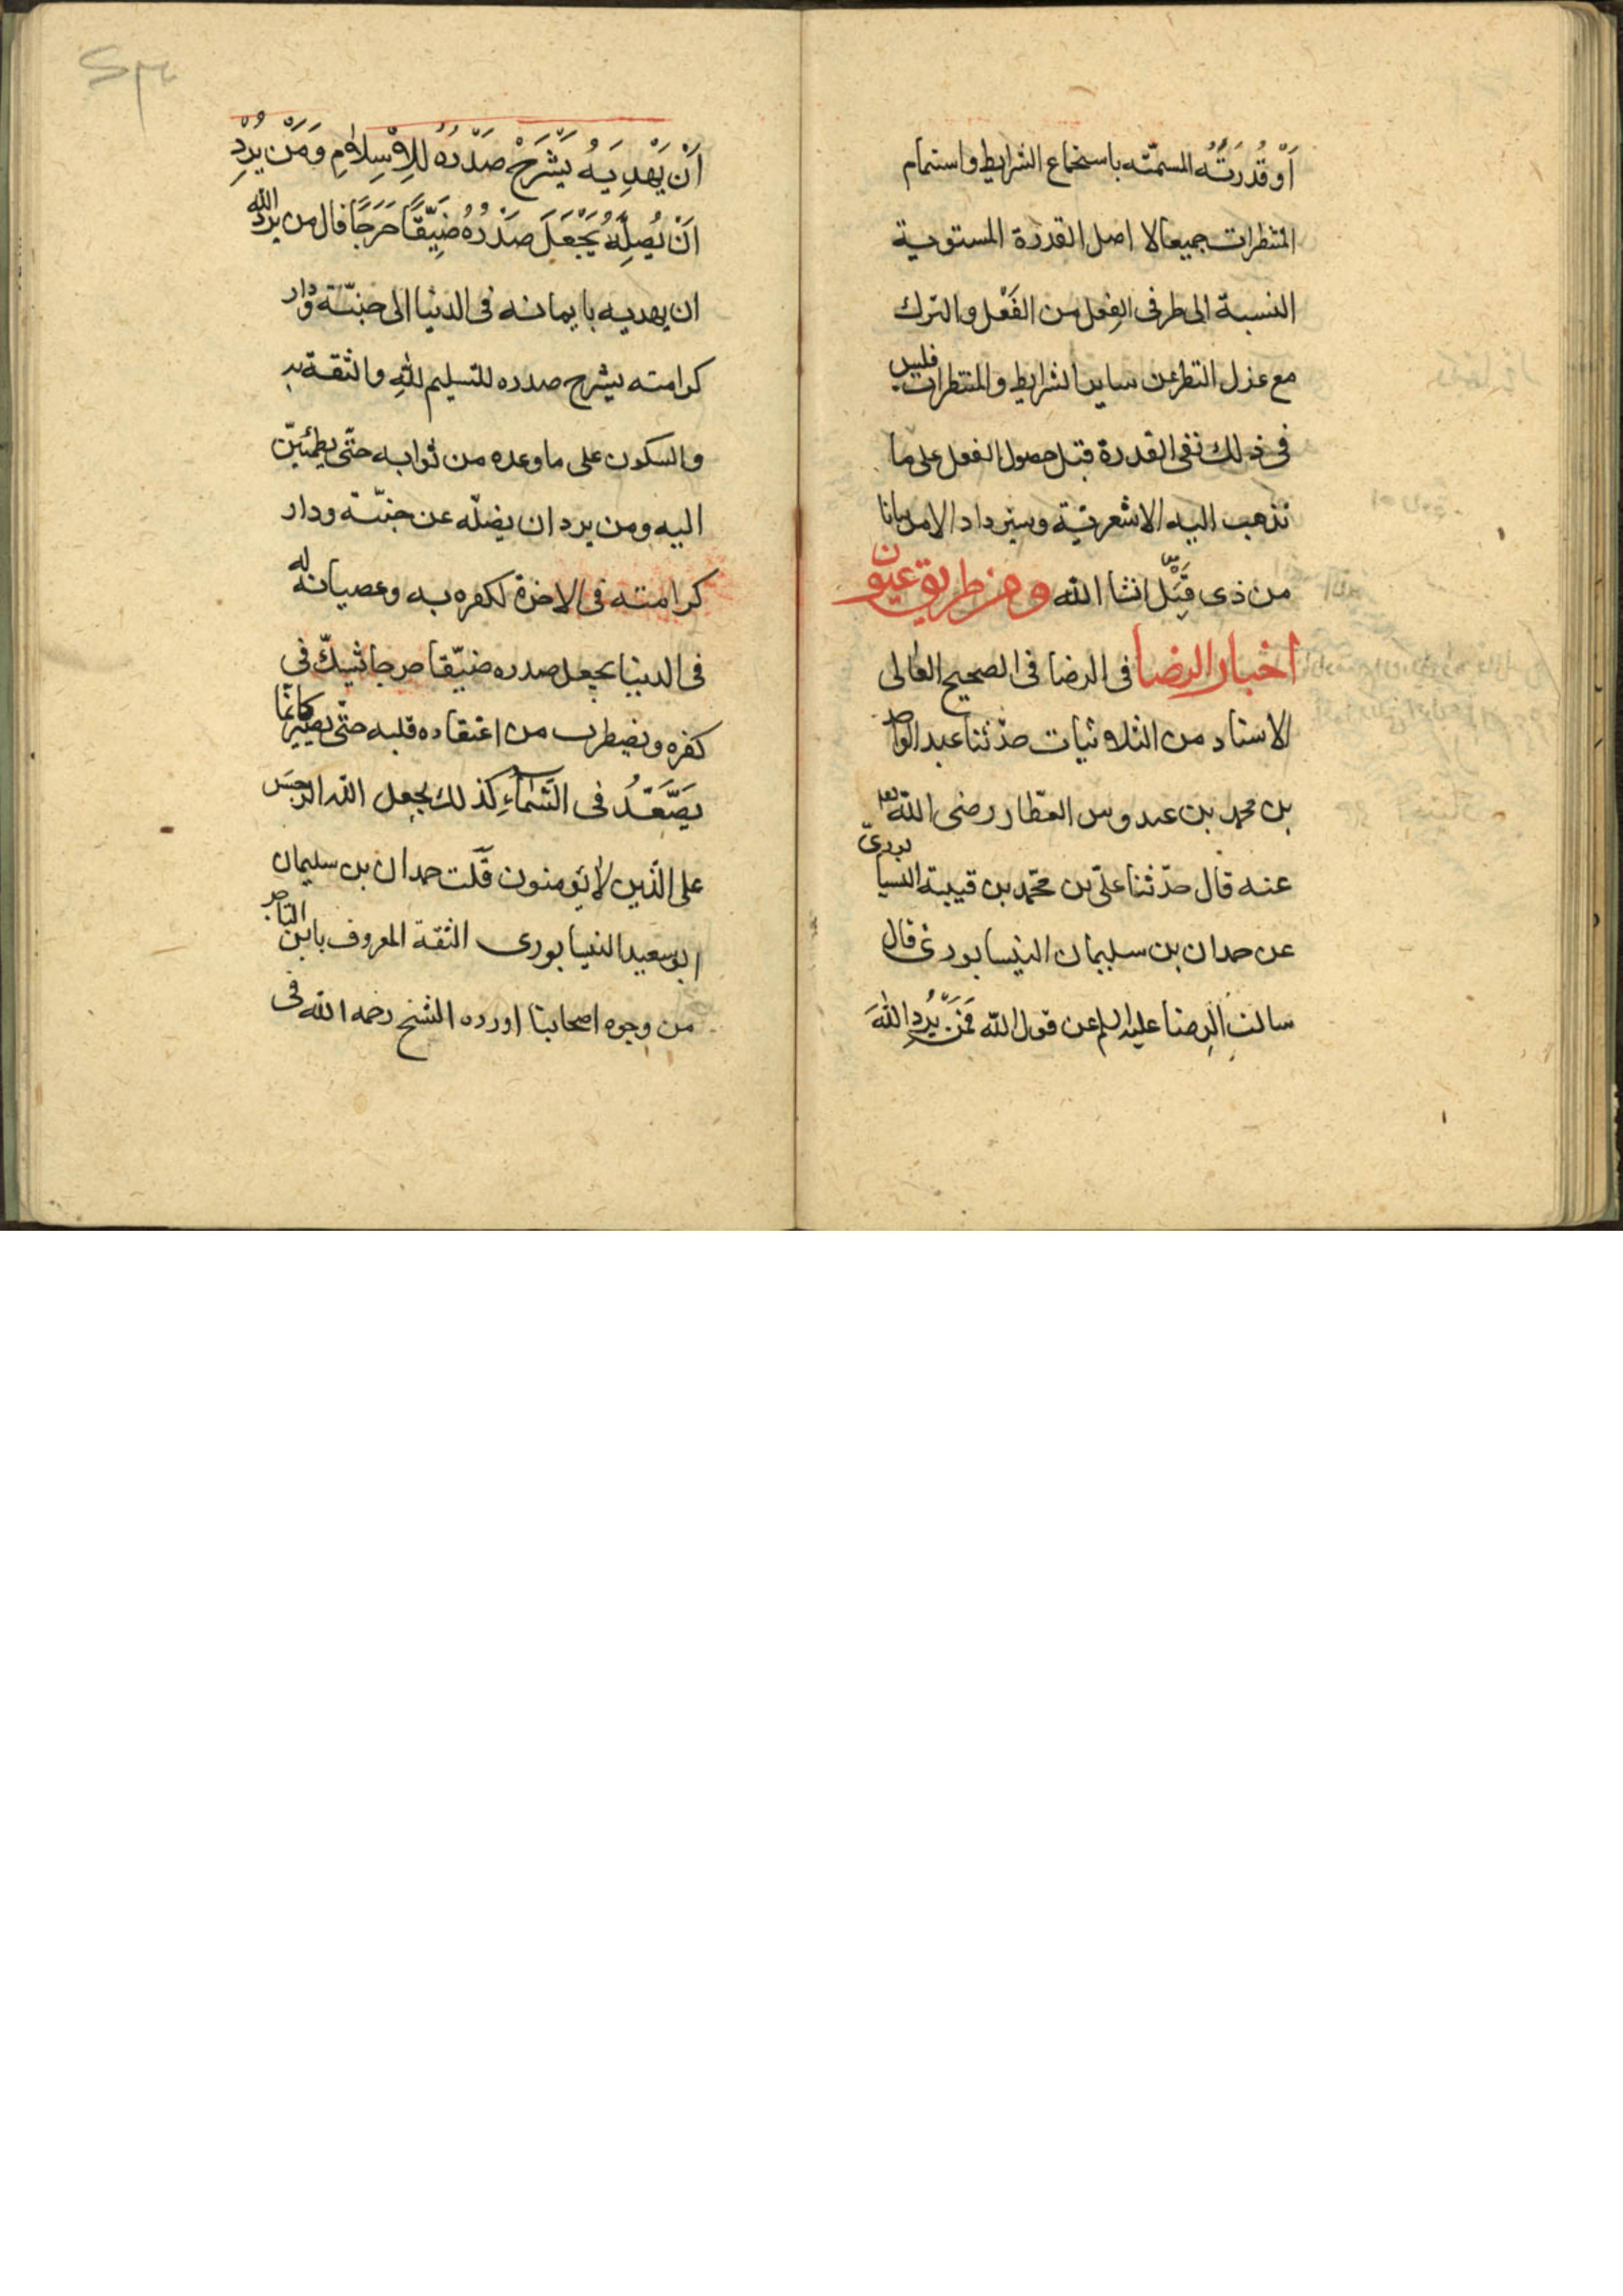 أَوْ قُدْرَتُه المسمّته باستجماع الشرايط واستتمام
المنتظرات جميعا لا اصل القدرة المستوية
النسبة الى طرفى الفعل من الفَعْل والترك
مع عزل النظر عن ساير الشرايط والمنتظرات فليس
فى ذلك نفى القدرة قبل حصول الفعل على ما
تذهب اليه الاشعرية وسيزداد الامر بيانا
من ذى قَبْل انشا الله ومن طريق عيون
اخبار الرضا فى الرضا فى الصحيح العالى
الاسناد من الثلاثيات حدّثنا عبد الواحد
بن محمد بن عبدوس العطار رضى الله تعالى
عنه قال حدّثنا علىّ بن محمّد بن قتيبة النيسابورىّ
عن حمدان بن سليمان النيسابورى قال
سالت الرضا عليه السلم عن قول الله فَمَنْ يُرِدِ اللهَ
أَنْ يَهْدِيَهُ يَشْرَحْ صَدْرَهُ لِلاِسْلامِ وَمَنْ يُرِدْ
اَنْ يُضِلَّهُ يَجْعَلْ صَدْرَهُ ضَيِّقًا حَرَجًا قال من يرد الله
ان يهديه بايمانه فى الدنيا الى جنّته ودار
كرامته يشرح صدره للتسليم لله والثقة به
والسكون على ما وعده من ثوابه حتّى يطمئنّ
اليه ومن يرد ان يضلّه عن جنّته ودار
كرامته فى الاخرة لكفره به وعصيانه له
فى الدنيا يجعل صدره ضيّقا حرجا يشكّ فى
كفره ويضطرب من اعتقاده قلبه حتّى يصير كانّما
يَصَّعَّدُ فى السَّمَاءِ كذلك يجعل الله الرجس
على الذين لا يؤمنون قلت حمدان بن سليمان
ابو سعيد النيسابورى الثقة المعروف بابن التاجر
من وجوه اصحابنا اورده الشيخ رحمه الله فى